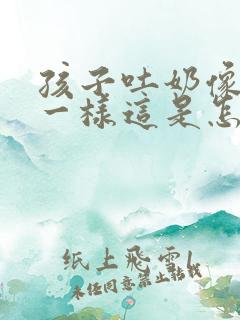 孩子吐奶像
一樣這是怎
纸上飛雲
未经同意禁止转载